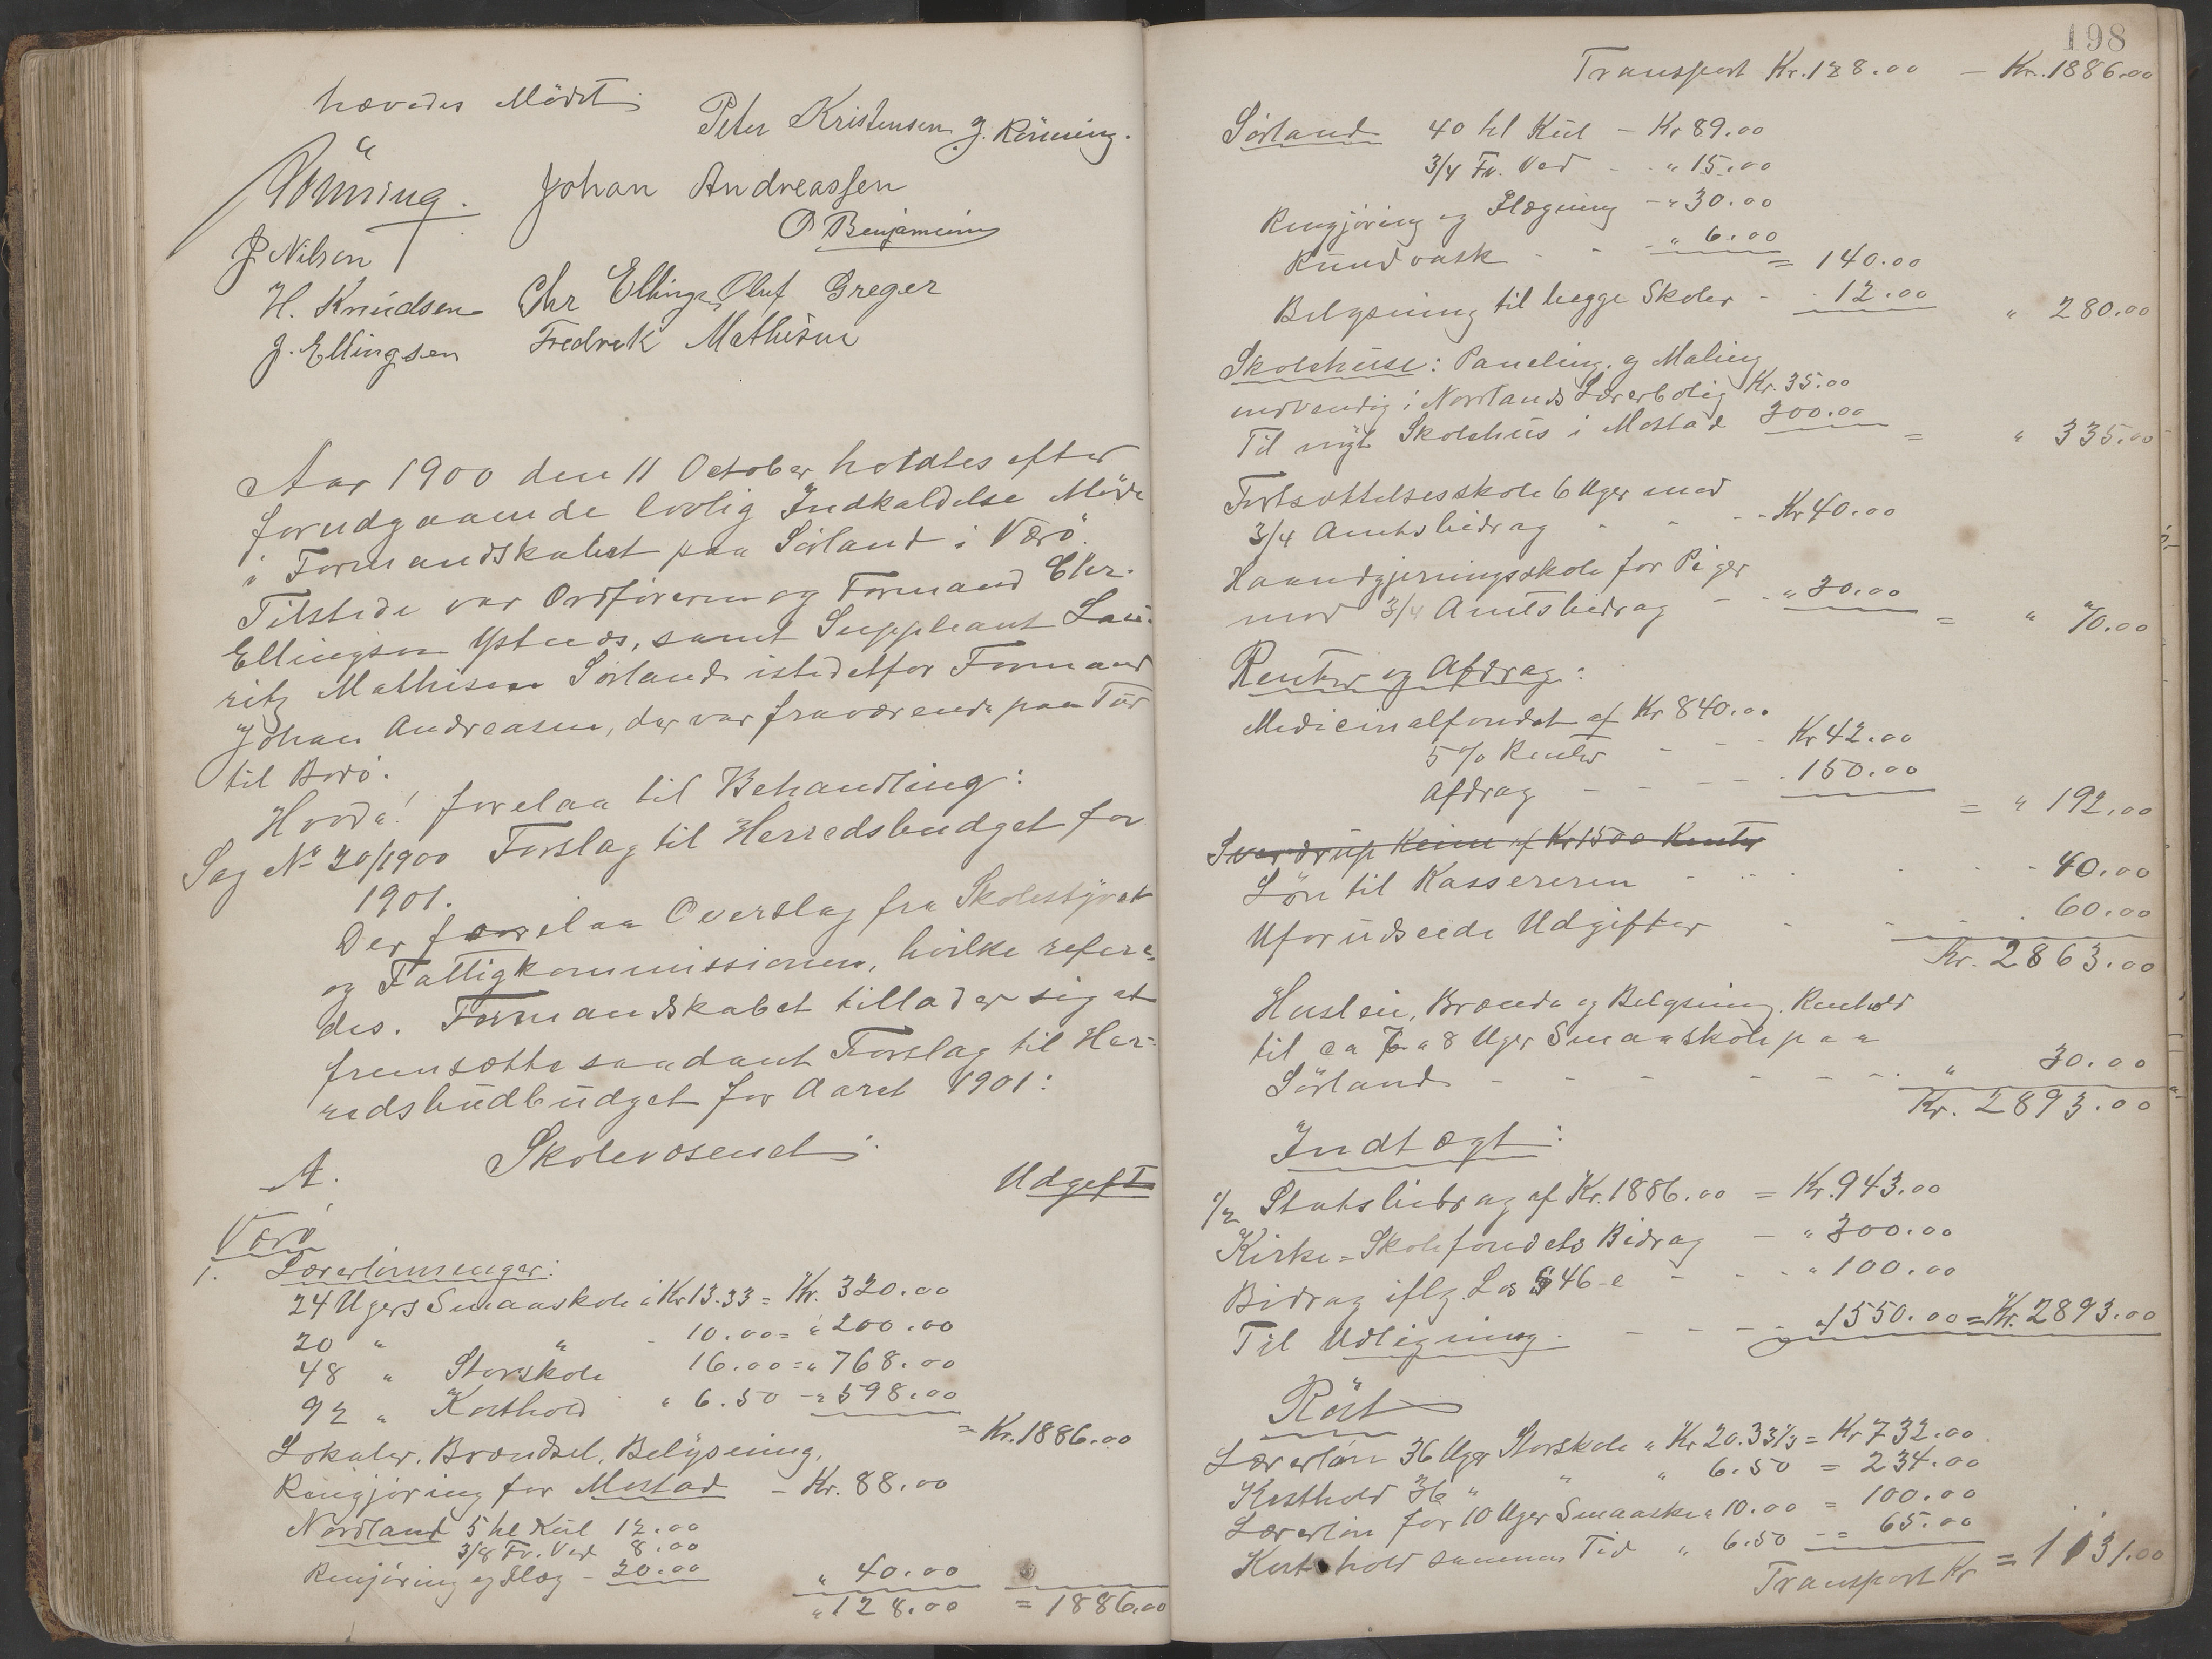 hævedes Mødet.
Peter Kristensen J. Rönning.
Rönning. Johan Andreassen
O Benjaminsen
J Nilsen
H. Knudsen Chr Ellingsen Oluf Greger
J. Ellingsen Fredrek Mathisen
Aar 1900 den 11 October holdtes efter
forudgaaende lovlig Indkaldelse Møde
i Formandskabet paa Sørland i Værø.
Tilstede var Ordføreren og Formand Chr.
Ellingsen Ystnes, samt Suppleant Lau-
ritz Mathisen Sørland istedetfor Formand
Johan Andreasen, der var fraværende paa Tur
til Bodø.
Hvoda! forelaa til Behandling:
Sag No 30/1900 Forslag til Herredsbudget for
1901.
Der forelaa Overslag fra Skolestyret
og Fattigkommissionen, hvilke refere-
des. Formandskabet tillader sig at
fremsætte saadant Forslag til Her-
redsbudbudget for Aaret 1901:
A. Skolevæsenet:
Udgift
Værø
1. Lærerlønninger:
24 Ugers Smaaskole á Kr 13.33 = Kr. 320.00
20 " " - 10.00 = " 200.00
48 " Storskole 16.00 = " 768.00
92 " Kosthold " 6.50 - " 598.00
= Kr. 1886.00
Lokaler, Brændsel, Belysning,
Rengjøring for Mostad - Kr. 88.00
Nordland 5 hl Kul 12.00
3/8 Fv. Ved 8.00
Renjøring og Flæg - 20.00 " 40.00
" 128.00 = 1886.00
198
Transport Kr. 128.00 - Kr. 1886.00
Sørland 40 hl Kul - Kr 89.00
3/4 Fv. Ved - - " 15.00
Rengjøring og Flægning - " 30.00
Rundvask - - " 6.00
= 140.00
Belysning til begge Skoler - - 12.00 " 280.00
Skolehuse: Paneling og Maling
indvendig i Nordlands Lærerbolig Kr. 35.00
Til nyt Skolehus i Mostad 300.00 = " 335.00
Fortsættelsesskole 6 Uger med
3/4 Amtsbidrag - - - Kr 40.00
Haandgjerningsskole for Piger
med 3/4 Amtsbidrag - - " 30.00 = " 70.00
Renter og Afdrag:
Medicinalfondet af Kr 840.00
5 % Renter - - - Kr 42.00
Afdrag - - - - 150.00
= " 192.00
Sverdrup Keim af Kr 1500 Renter
Løn til Kassereren - - - - 40.00
Uforudseede Udgifter - - - 60.00
Kr. 2863.00
Husleie, Brænde og Belysning. Renhold
til ca 7 a 8 Uger Smaaskole paa
Sørland - - - - - - - " 30.00
Kr. 2893.00
Indtægt:
1/2 Statsbidrag af Kr. 1886.00 = Kr. 943.00
Kirke- Skolefondets Bidrag - " 300.00
Bidrag iflg. Los § 46-e - - - " 100.00
Til Udligning - - - - " 1550.00 = Kr. 2893.00
Røst
Lærerløn 36 Uger Storskole " Kr 20.33 1/3 = Kr 732.00
Kosthold 36 " " " 6.50 = 234.00
Lærerløn for 10 Uger Smaaskole a 10.00 = 100.00
Kosthold samme Tid " 6.50 - = 65.00
Transport Kr = 1131.00